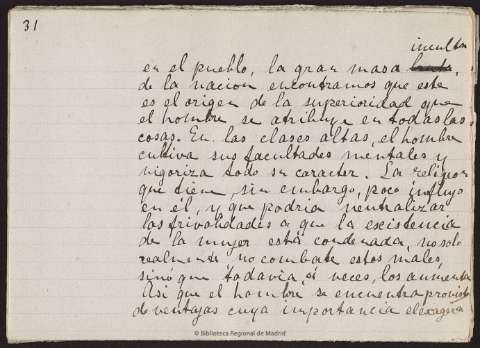 31
inculta
en el pueblo, la gran masa bruta,
de la nacion encontramos que este
es el origen de la superioridad que
el hombre se atribuye en todas las
cosas. En las clases altas, el hombre
cultiva sus facultades mentales y
vigoriza todo su caracter. La religion
que tiene, sin embargo, poco influjo
en él, y que podria neutralizar
las frivolidades a que la existencia
de la mujer está condenada, no solo
realmente no combate estos males,
sinó que todavia, á veces, los aumenta
Asi que el hombre se encuentra provisto
de ventajas cuya importancia el exagera
© Biblioteca Regional de Madrid